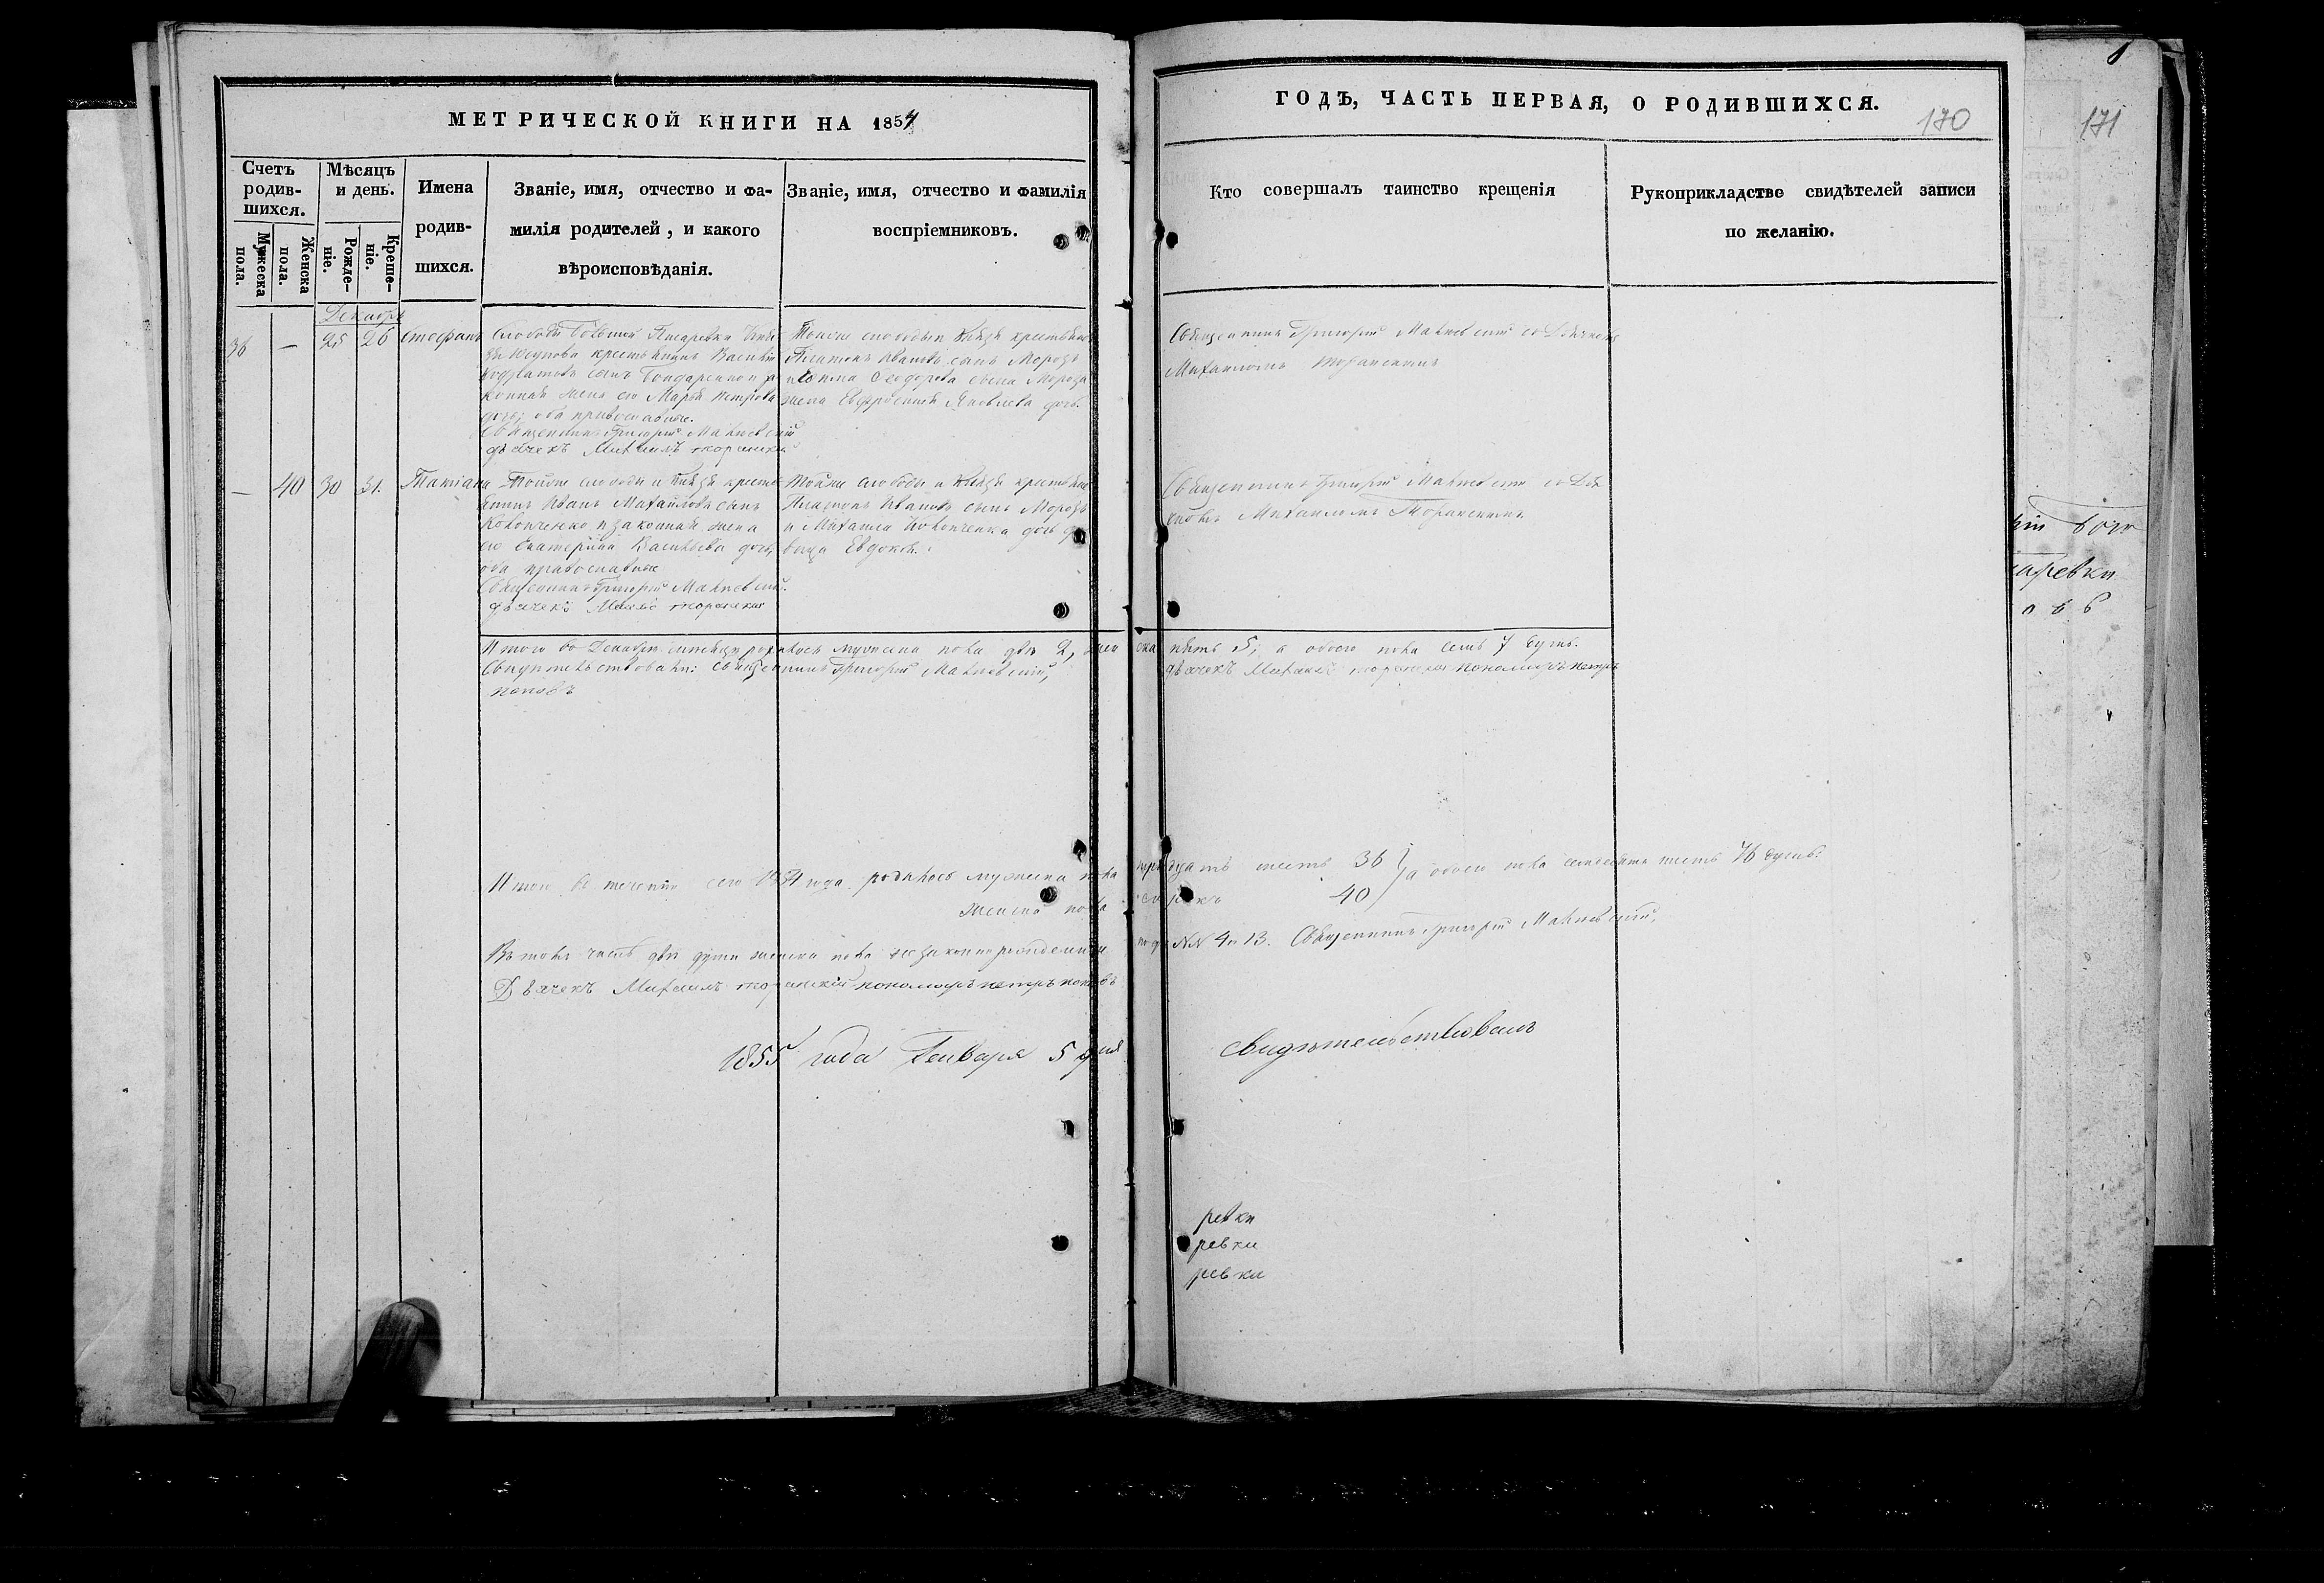 МЕТРИЧЕСКОЙ КНИГИ НА 1854
ГОДЪ, ЧАСТЬ ПЕРВАЯ, О РОДИВШИХСЯ.
170
171
Счетъ родив-шихся.
Мужеска пола.
Женска пола.
Мѣсяцъ и день.
Рожде-ніе.
Креще-ніе.
Имена
родив-
шихся.
Званіе, имя, отчество и фа-
милія родителей, и какого
вѣроисповѣданія.
Званіе, имя, отчество и фамилія
воспріемниковъ.
Кто совершалъ таинство крещенія
Рукоприкладство свидѣтелей записи
по желанію.
Декабрь
36 — 25 26 Стефанъ
Слободы Большой Писаревки Князя
Юсупова крестьянинъ Василій
сынъ Бондаренко и за
конная жена его Марья Петрова
дочь, оба православные.
Священникъ Григорій
дьячекъ Михаилъ
Тойже слободы Князя крестьянинъ
Платонъ Ивановъ сынъ Морозъ
и Феодорова сына Мороза
жена Евфросинія Яковлева дочь.
Священникъ Григорій съ Дьячкомъ
Михаиломъ
— 40 30 31. Татіана
Тойже слободы и Князя кресть
янинъ Иванъ Михайловъ сынъ
и законная жена
его Екатерина Васильева дочь,
оба православные
Священникъ Григорій
дьячекъ
Тойже слободы и Князя крестьянинъ
Платонъ Ивановъ сынъ Морозъ
и Михаила дочь дѣ
вица Евдокія.
Священникъ Григорій съ Дья
чкомъ Михаиломъ
Итого въ Декабрѣ мѣсяцѣ родилось мужеска пола два 2, жен
ска пять 5, а обоего пола семь 7 душъ.
Свидѣтельствовали: Священникъ Григорій
дьячекъ Михаилъ пономарь петръ
поповъ
Итого въ теченіи сего 1854 года родилось мужеска пола
тридцать шесть 36 а обоего пола семьдесятъ шесть 76 душъ.
женска пола сорокъ 40
Въ томъ числѣ двѣ души женска пола незаконно рожденныя
подъ NN 4 и 13. Священникъ Григорій
Дьячекъ Михаилъ пономарь петръ поповъ
1855 года Генваря 5 дня
свидѣтельствовалъ
ревки
ревки
ревки